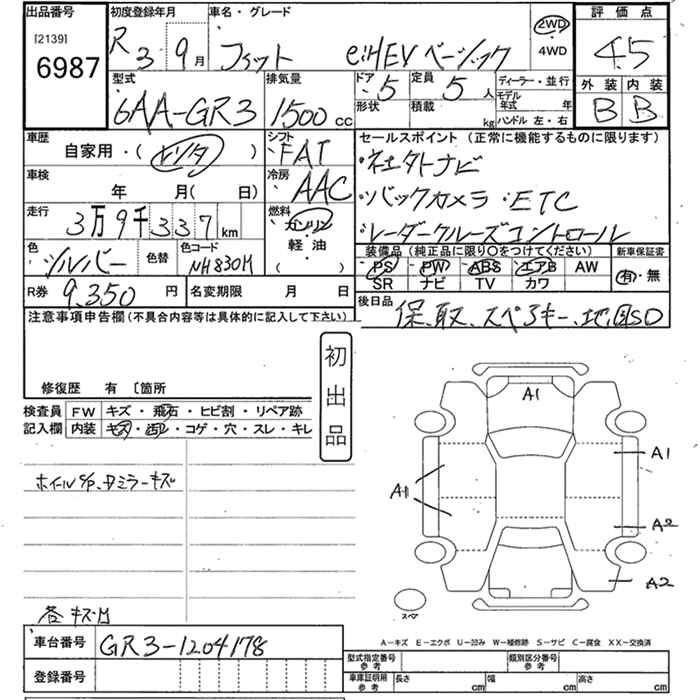 出品番号
[2139]
6987
初度登録年月
R 3 9月
車名・グレード
フィット e:HEVベーシック
2WD
4WD
評価点
4.5
外装 内装
B B
型式
6AA-GR3
排気量
1500 cc
ドア 5
形状
定員 5 人
積載 kg
ディーラー・並行
モデル年式 年
ハンドル 左・右
車歴
自家用・(レンタ)
シフト
FAT
セールスポイント (正常に機能するものに限ります)
・社外ナビ
・バックカメラ・ETC
・レーダークルーズコントロール
車検
年 月(日)
冷房
AAC
走行
3万9千337km
燃料
ガソリン
軽・油
( )
色
シルバー
色替
色コード
NH830M
装備品 (純正品に限り○をつけてください)
PS PW ABS エアB AW
SR ナビ TV カワ
新車保証書
有・無
R券 9,350 円
名変期限 月 日
後日品
保、取、スペアキー、地図SD
注意事項申告欄 (不具合内容等は具体的に記入して下さい)
修復歴 有 〔箇所
初出品
検査員記入欄
FW キズ・飛石・ヒビ割・リペア跡
内装 キズ・凹・コゲ・穴・スレ・キレ
ホイルC/P、ドミラーキズ
各キズ凹
A1
A1
A1
A2
A2
スペア
A-キズ E-エクボ U-凹み W-補修跡 S-サビ C-腐食 XX-交換済
車台番号 GR3-1204178
登録番号
型式指定番号 参考
類別区分番号 参考
車庫証明用 参考
長さ cm 幅 cm 高さ cm